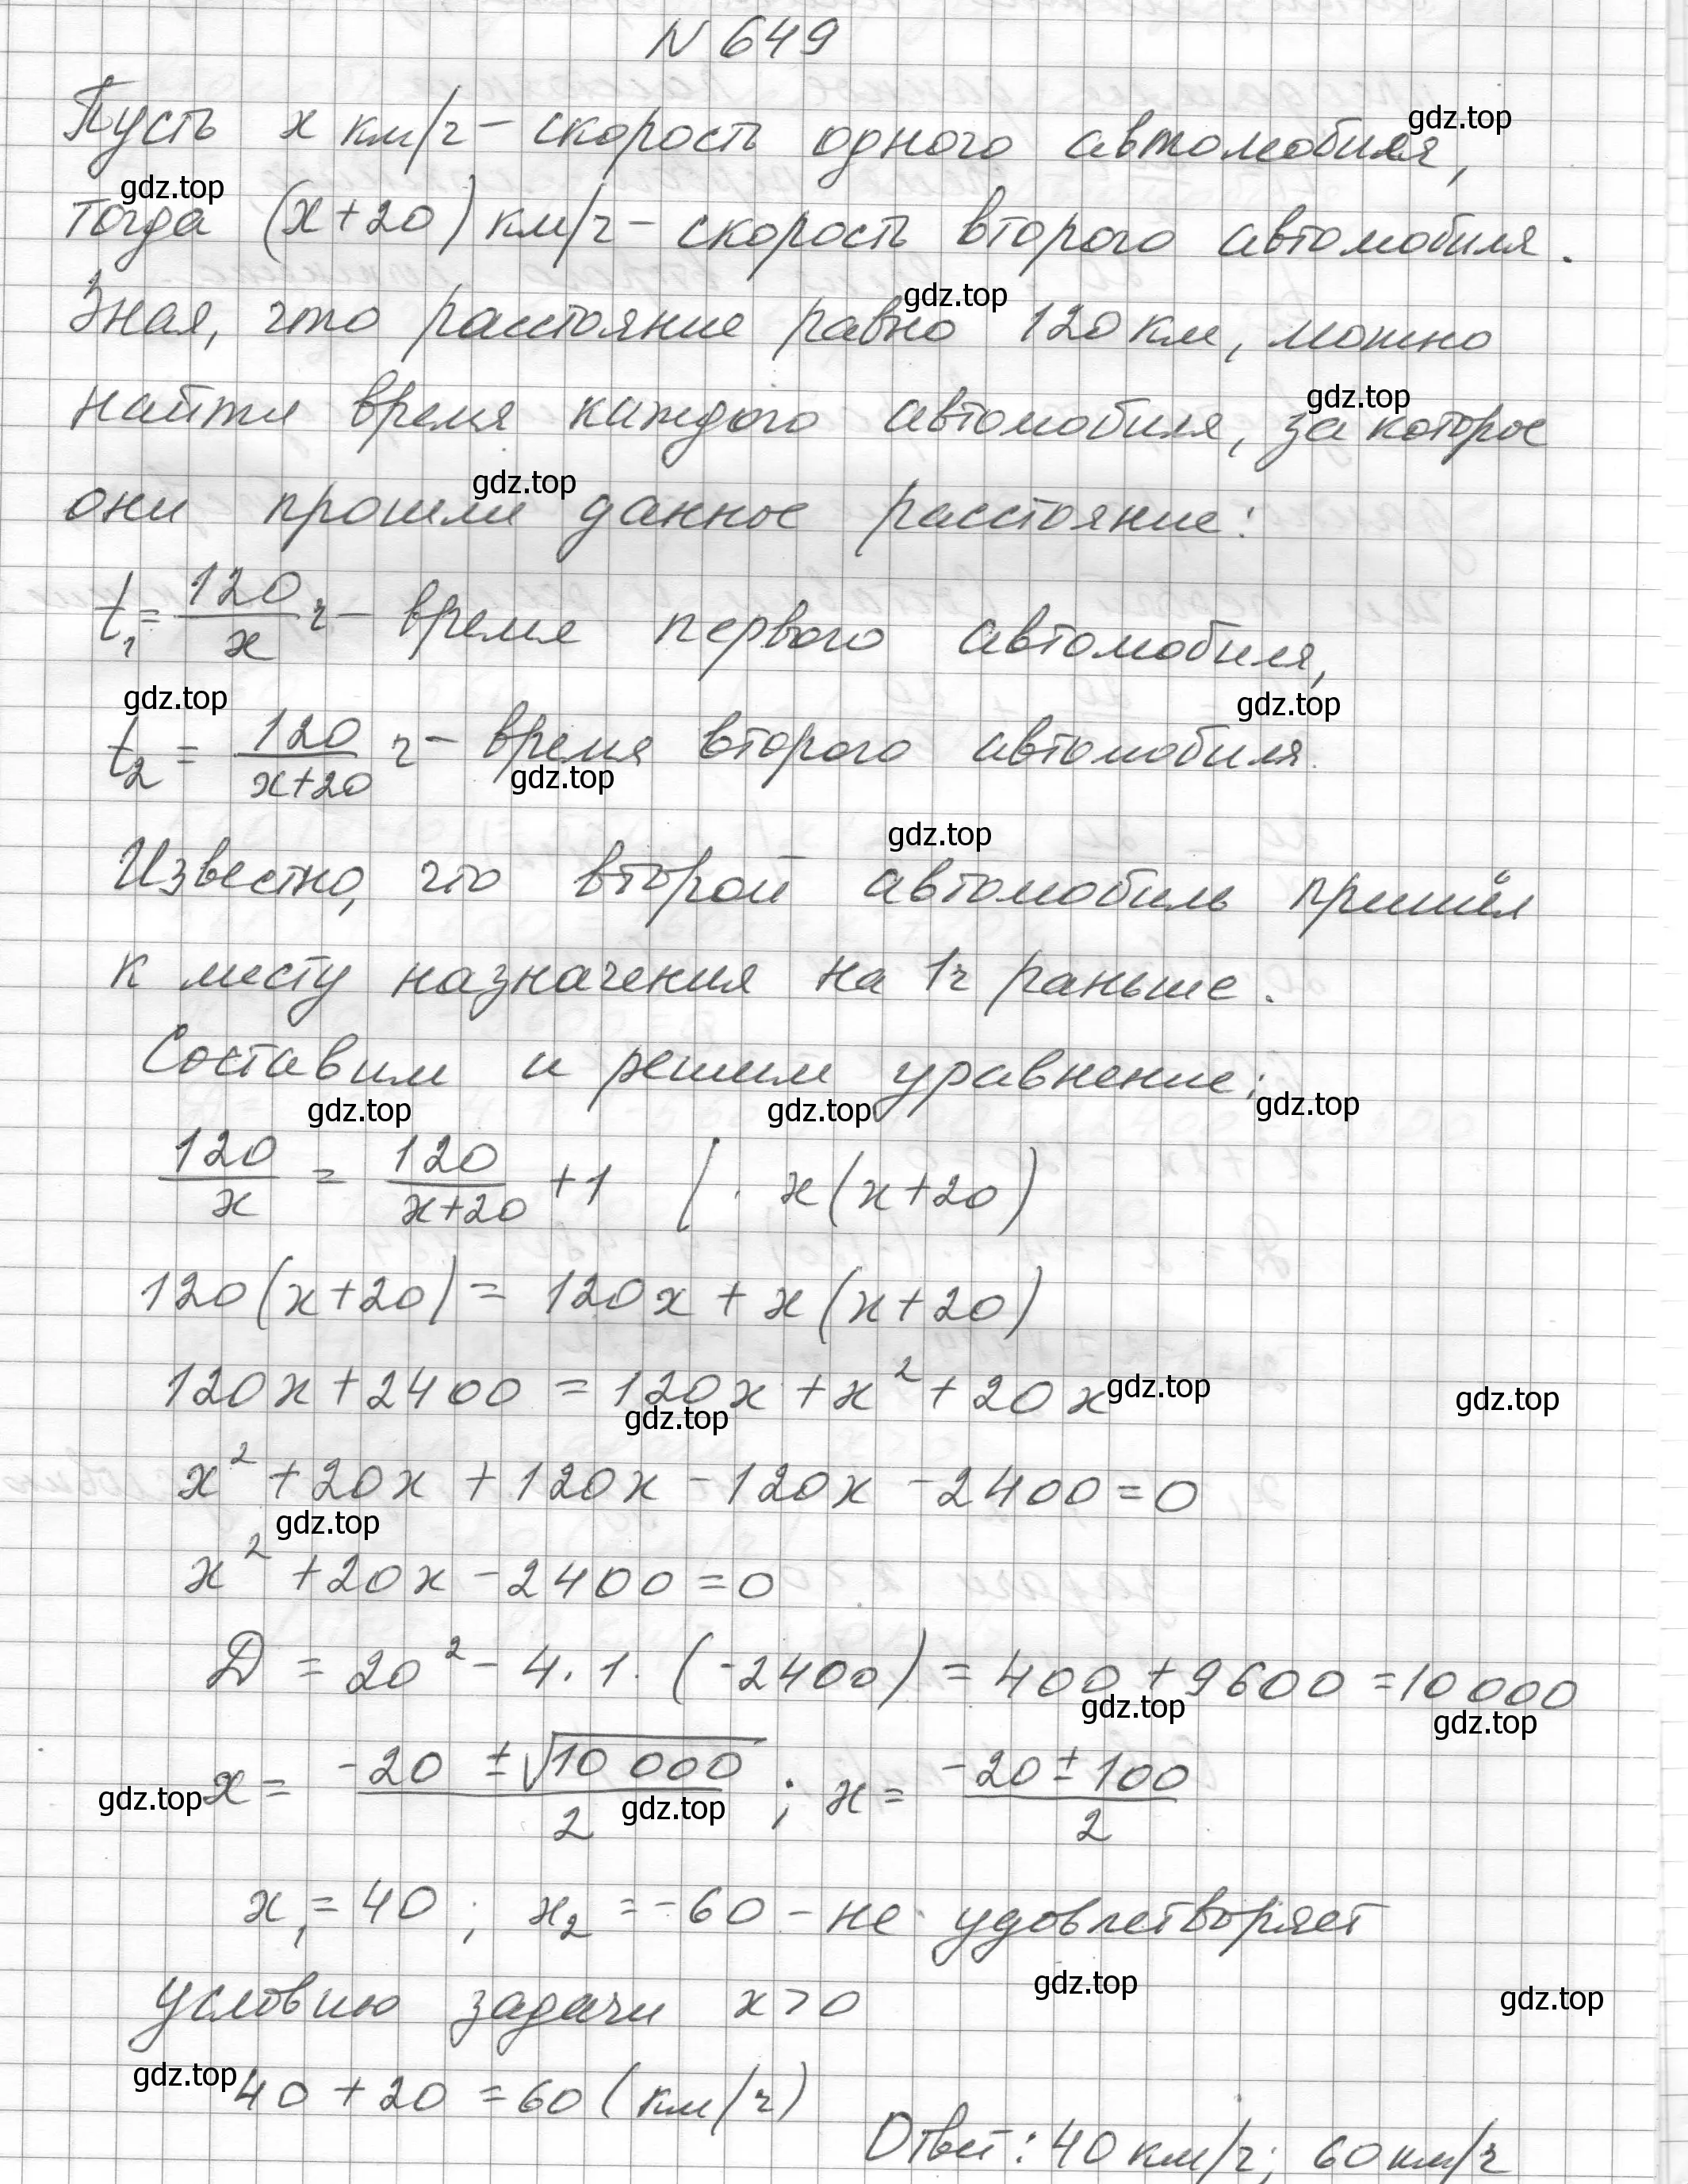 N 649
Пусть x км/ч – скорость одного автомобиля,
gdz.top
gdz.top
тогда (x+20) км/ч – скорость второго автомобиля.
gdz.top
Зная, что расстояние равно 120 км, можно
gdz.top
найти время каждого автомобиля, за которое
gdz.top
они прошли данное расстояние:
t₁ = 120/x ч – время первого автомобиля,
gdz.top gdz.top
t₂ = 120/(x+20) ч – время второго автомобиля.
gdz.top
gdz.top
Известно, что второй автомобиль пришёл
к месту назначения на 1ч раньше.
Составим и решим уравнение:
gdz.top gdz.top gdz.top
120/x = 120/(x+20) + 1 | · x(x+20)
120(x+20) = 120x + x(x+20)
120x + 2400 = 120x + x² + 20x
gdz.top gdz.top
gdz.top
x² + 20x + 120x – 120x – 2400 = 0
gdz.top
x² + 20x – 2400 = 0
D = 20² – 4 · 1 · (-2400) = 400 + 9600 = 10 000
gdz.top gdz.top
x = (-20 ± √10 000)/2 ; x = (-20 ± 100)/2
gdz.top gdz.top
x₁ = 40 ; x₂ = -60 – не удовлетворяет
gdz.top gdz.top
условию задачи x > 0
gdz.top
40 + 20 = 60 (км/ч)
Ответ: 40 км/ч; 60 км/ч